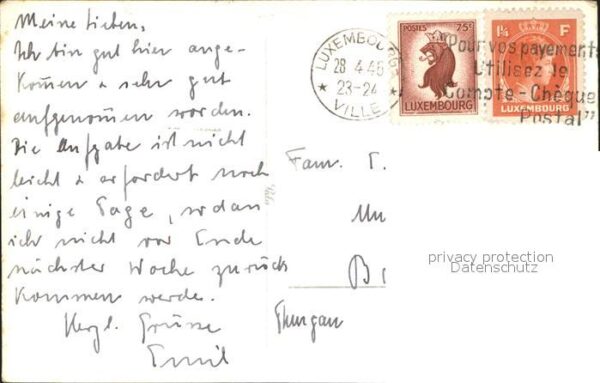 Meine Lieben,
Ich bin gut hier ange-
kommen & sehr gut
aufgenommen worden.
Die Aufgabe ist nicht
leicht & erfordert noch
einige Tage, sodass
ich nicht vor Ende
nächster Woche zurück
kommen werde.
Herzl. Grüsse
Emil
LUXEMBOURG
28 4.46
23-24
VILLE
POSTES 75c
LUXEMBOURG
1¼ F
LUXEMBOURG
"Pour vos payements
Utilisez le
Compte-Chèque
Postal"
Fam. T.
Mu
B
Thurgau
privacy protection
Datenschutz